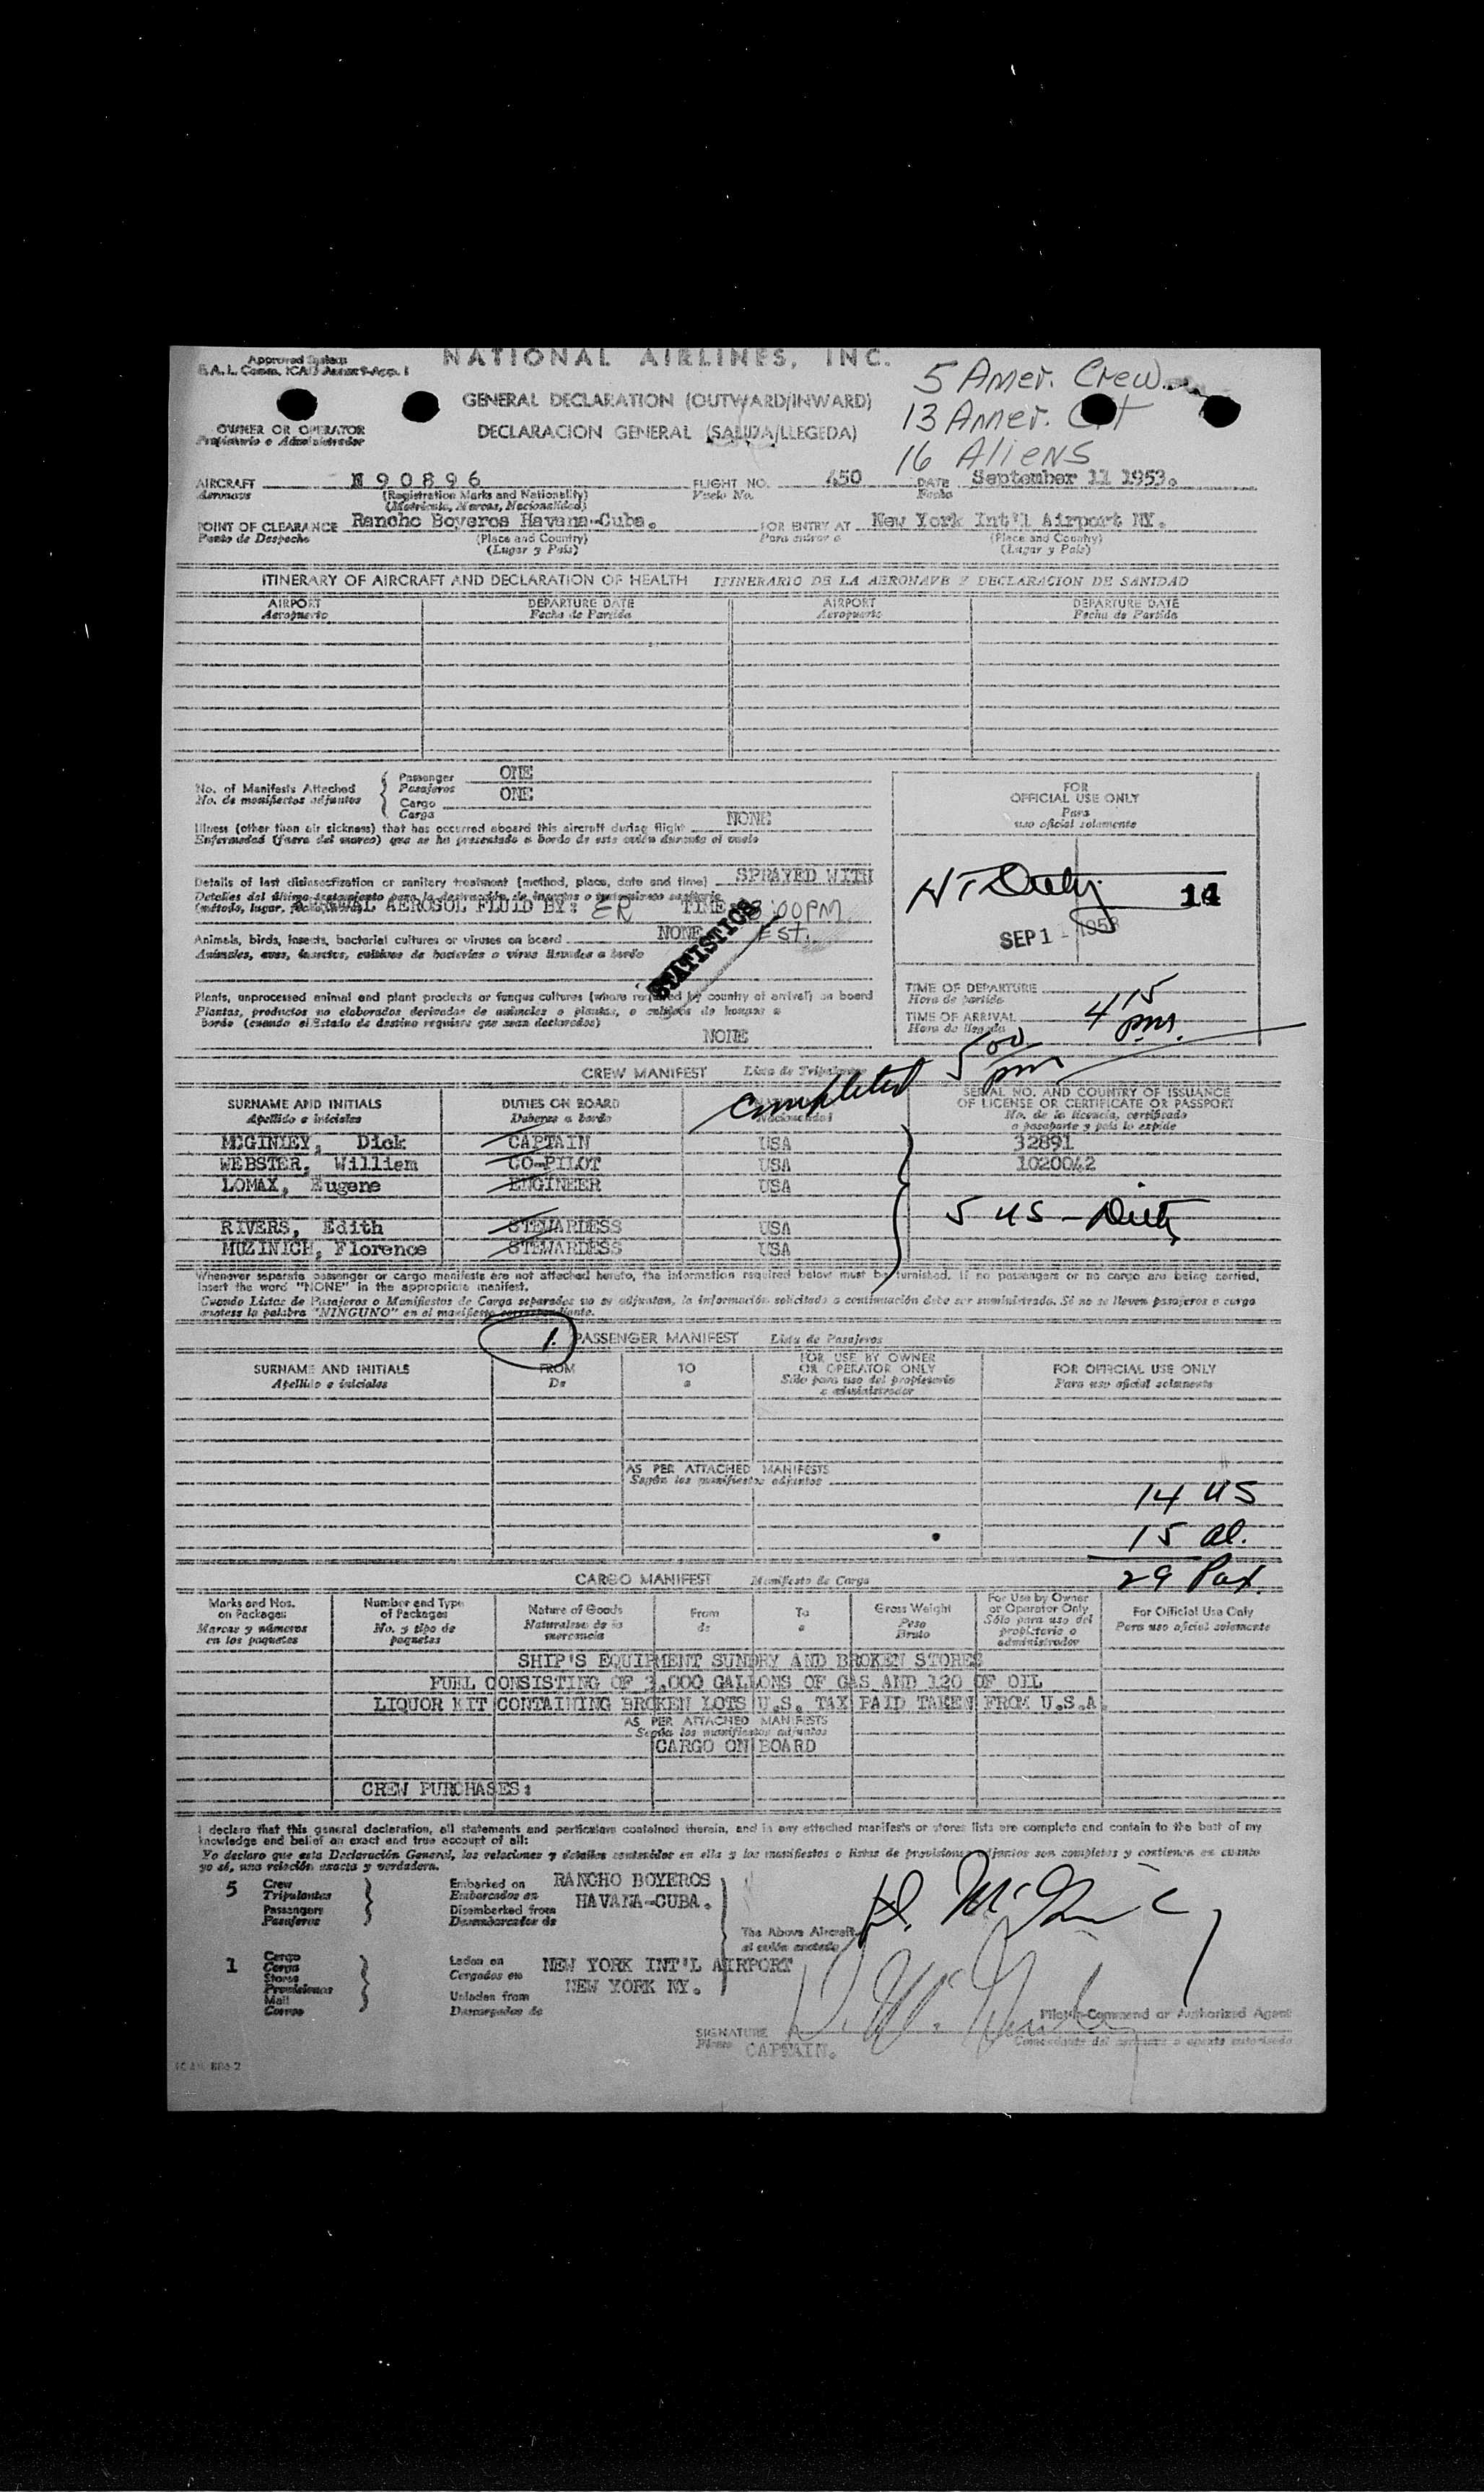 Approved System
NATIONAL AIRLINES, INC.
5 Amer. Crew
GENERAL DECLARATION (OUTWARD/INWARD)
13 Amer. Cit
OWNER OR OPERATOR
Propietario o Administrador
DECLARACION GENERAL (SALIDA/LLEGEDA)
16 Aliens
AIRCRAFT N90896 FLIGHT NO. 450 DATE September 11 1953.
Aeronave (Registration Marks and Nationality) Vuelo No. Fecha
(Matricula, Marcas, Nacionalidad)
POINT OF CLEARANCE Rancho Boyeros Havana-Cuba. FOR ENTRY AT New York Int'l Airport NY.
Punto de Despacho (Place and Country) Para entrar a (Place and Country)
(Lugar y País) (Lugar y País)
ITINERARY OF AIRCRAFT AND DECLARATION OF HEALTH ITINERARIO DE LA AERONAVE Y DECLARACION DE SANIDAD
AIRPORT DEPARTURE DATE AIRPORT DEPARTURE DATE
Aeropuerto Fecha de Partida Aeropuerto Fecha de Partida
No. of Manifests Attached Passenger ONE
No. de manifiestos adjuntos Pasajeros
Cargo ONE
Carga
FOR
OFFICIAL USE ONLY
Para
uso oficial solamente
Illness (other than air sickness) that has occurred aboard this aircraft during flight NONE
Enfermedad (fuera del mareo) que se ha presentado a bordo de este avión durante el vuelo
Details of last disinsectization or sanitary treatment (method, place, date and time) SPRAYED WITH
AEROSOL FLUID BY: ER TIME :00PM
EST.
14
SEP 1
STATISTICS
Animals, birds, insects, bacterial cultures or viruses on board NONE
Animales, aves, insectos, cultivos de bacterias o virus llevados a bordo
Plants, unprocessed animal and plant products or fungus cultures (where required by country of arrival) on board
Plantas, productos no elaborados derivados de animales o plantas, o cultivos de hongos a
bordo (cuando el Estado de destino requiere que sean declarados)
NONE
TIME OF DEPARTURE
Hora de partida
TIME OF ARRIVAL 4 15 pm.
Hora de llegada
completed 5 00 pm
CREW MANIFEST Lista de Tripulantes
SURNAME AND INITIALS DUTIES ON BOARD SERIAL NO. AND COUNTRY OF ISSUANCE
Apellido e iniciales Deberes a bordo Nacionalidad OF LICENSE OR CERTIFICATE OR PASSPORT
No. de la licencia, certificado
o pasaporte y país lo expide
MCGINLEY, Dick CAPTAIN USA 32891
WEBSTER, William CO-PILOT USA 1020042
LOMAX, Eugene ENGINEER USA
5 US -
RIVERS, Edith STEWARDESS USA
MUZINICH, Florence STEWARDESS USA
Whenever separate passenger or cargo manifests are not attached hereto, the information required below must be furnished. If no passengers or no cargo are being carried,
insert the word "NONE" in the appropriate manifest.
Cuando Listas de Pasajeros o Manifiestos de Carga separados no se adjuntan, la información solicitada a continuación debe ser suministrada. Si no se lleven pasajeros o carga
anotese la palabra "NINGUNO" en el manifiesto correspondiente.
1. PASSENGER MANIFEST Lista de Pasajeros
SURNAME AND INITIALS FROM TO FOR USE BY OWNER FOR OFFICIAL USE ONLY
Apellido e iniciales De a OR OPERATOR ONLY Para uso oficial solamente
Sólo para uso del propietario
o administrador
AS PER ATTACHED MANIFESTS
Según los manifiestos adjuntos
14 US
15 al.
29 Pax.
CARGO MANIFEST Manifiesto de Carga
Marks and Nos. Number and Type Nature of Goods From To Gross Weight For Use by Owner For Official Use Only
on Packages of Packages Naturaleza de la de a Peso or Operator Only Para uso oficial solamente
Marcas y números No. y tipo de mercancia Bruto Sólo para uso del
en los paquetes paquetes propietario o
administrador
SHIP'S EQUIPMENT SUNDRY AND BROKEN STORES
FUEL CONSISTING OF ,000 GALLONS OF GAS AND 120 OF OIL
LIQUOR KIT CONTAINING BROKEN LOTS U.S. TAX PAID TAKEN FROM U.S.A.
AS PER ATTACHED MANIFESTS
Según los manifiestos adjuntos
CARGO ON BOARD
CREW PURCHASES:
I declare that this general declaration, all statements and particulars contained therein, and in any attached manifests or stores lists are complete and contain to the best of my
knowledge and belief an exact and true account of all:
Yo declaro que esta Declaración General, las relaciones y detalles contenidos en ella y los manifiestos o listas de provisiones adjuntos son completos y contienen en cuanto
yo sé, una relación exacta y verdadera.
5 Crew Embarked on RANCHO BOYEROS
Tripulantes Embarcados en HAVANA-CUBA.
Passengers Disembarked from
Pasajeros Desembarcados de
The Above Aircraft
al avión anotado
1 Cargo Laden on NEW YORK INT'L AIRPORT
Carga Cargados en NEW YORK NY.
Stores
Provisiones Unladen from
Mail Descargados de
Correo
Pilot-in-Command or Authorized Agent
SIGNATURE
Firma CAPTAIN.